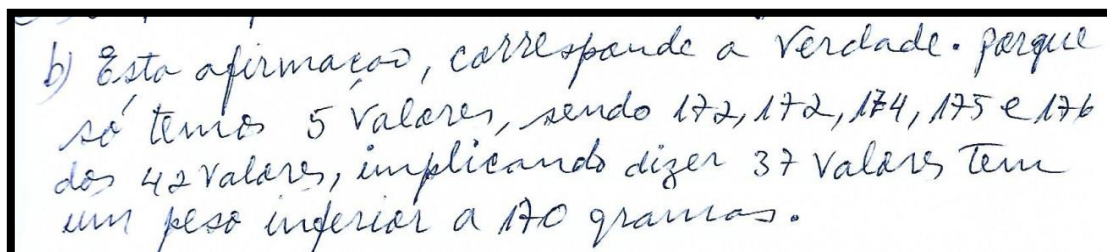 b) Esta afirmação, corresponde a verdade. Porque
só temos 5 valores, sendo 172, 172, 174, 175 e 176
dos 42 valores, implicando dizer 37 valores tem
um peso inferior a 170 gramas.